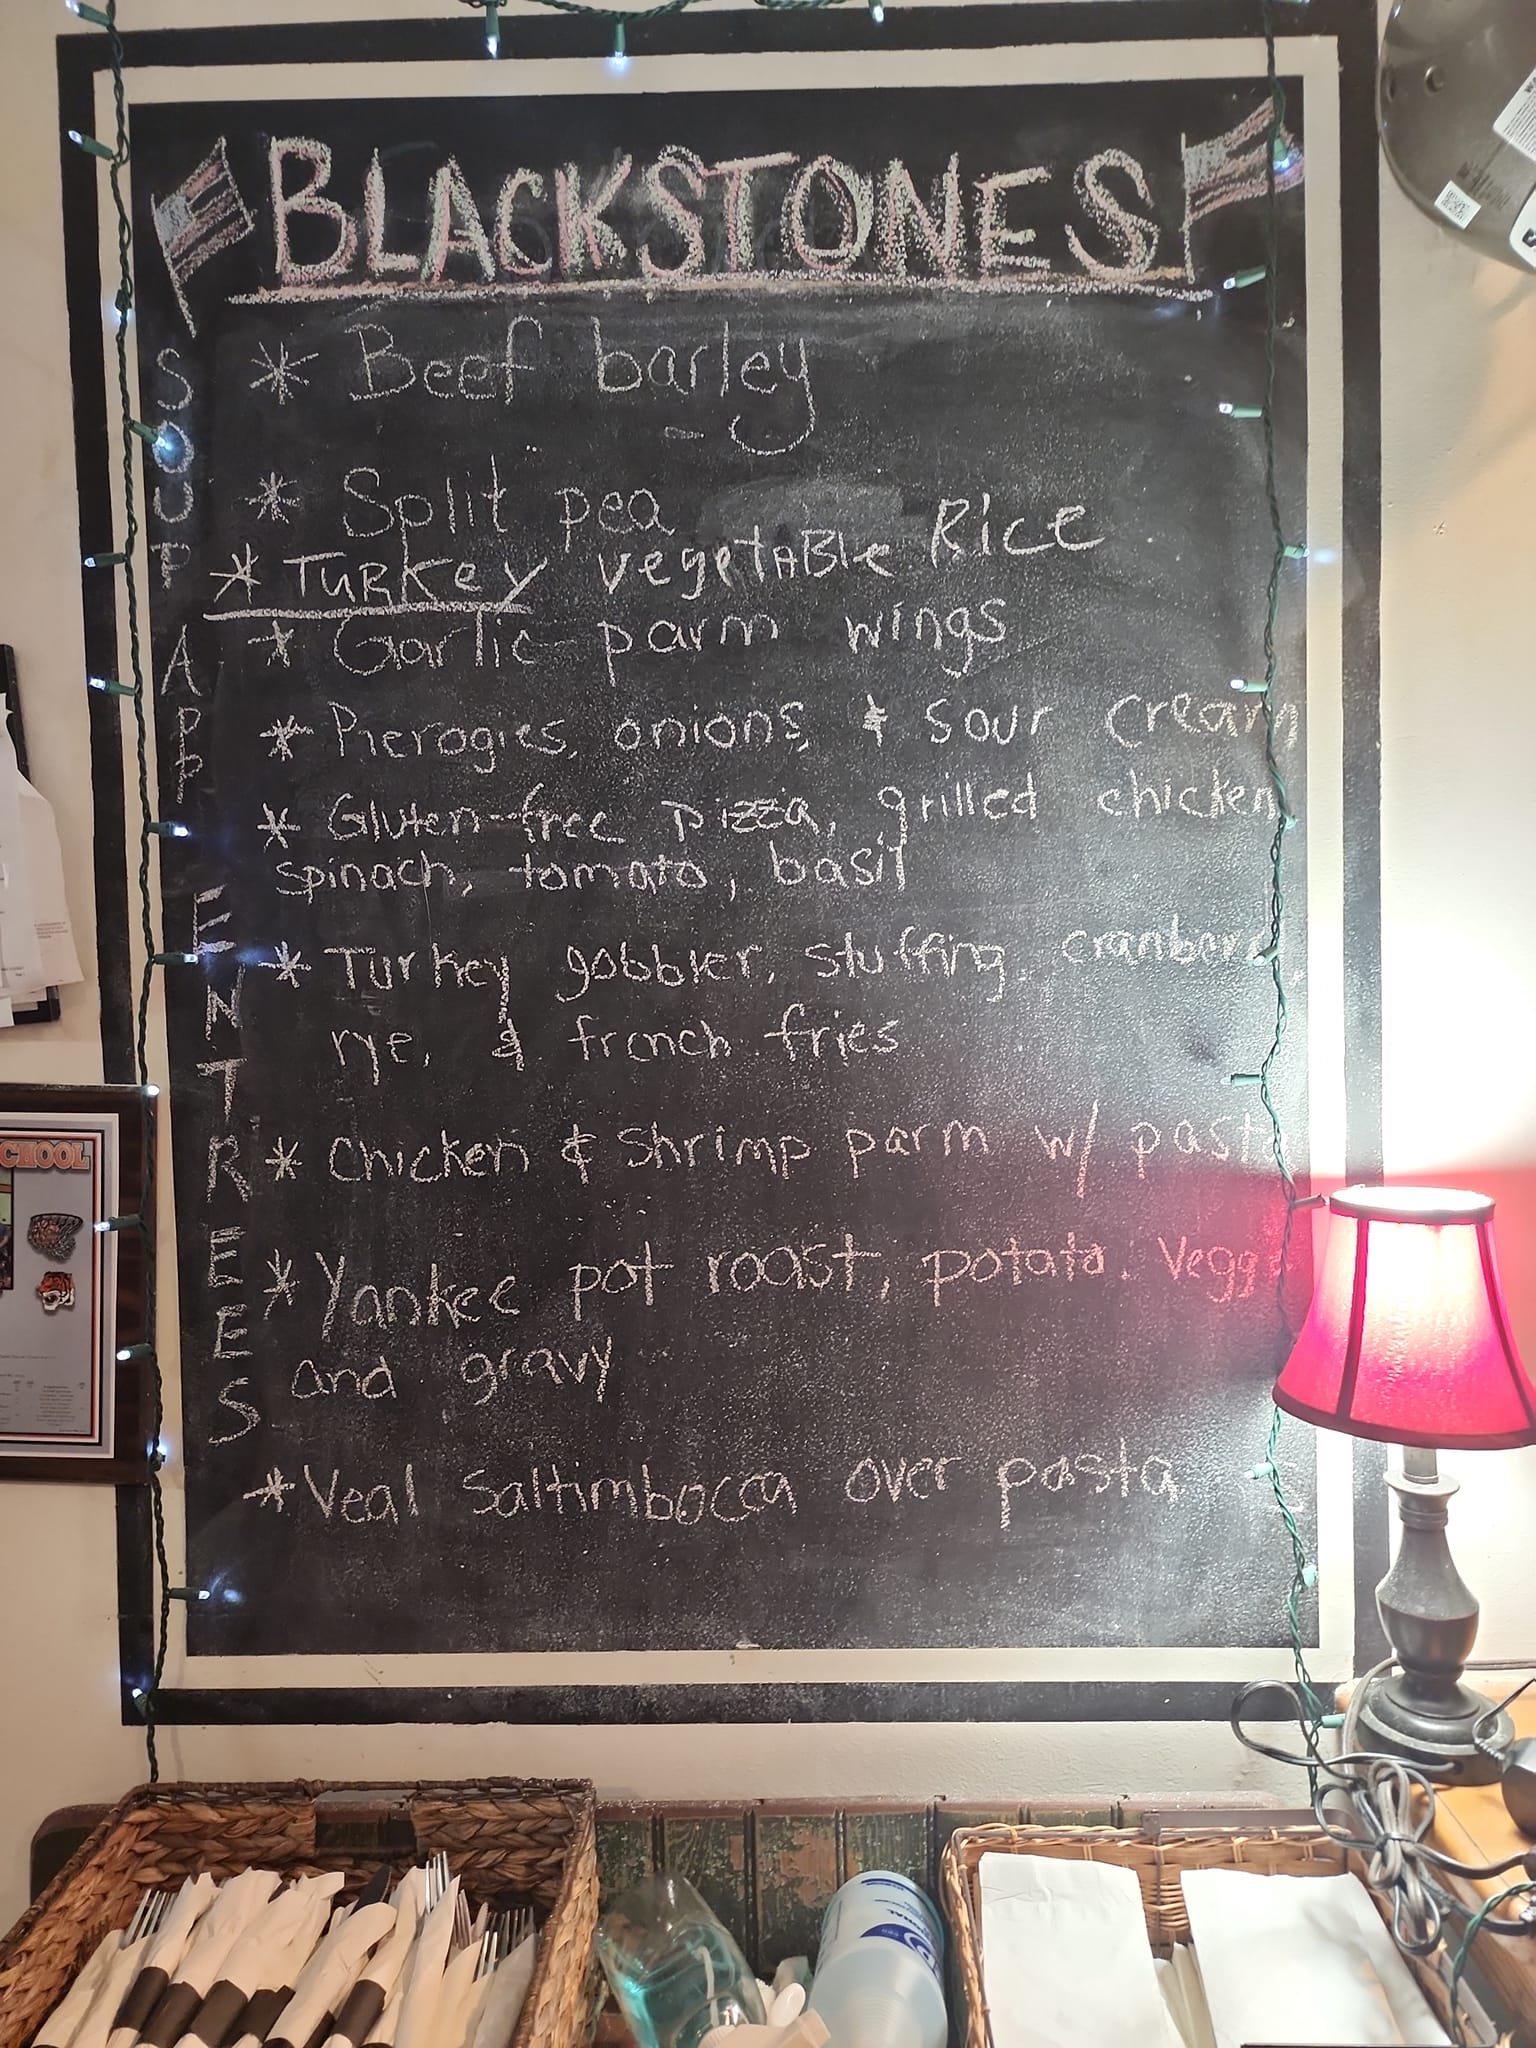 BLACKSTONES
SOUP
* Beef barley
* Split pea
* Turkey vegetable Rice
APP
* Garlic parm wings
* Pierogies, onions, & sour cream
* Gluten-free pizza, grilled chicken
spinach, tomato, basil
ENTREES
* Turkey gobbler, stuffing, cranberry,
rye, & french fries
* Chicken & Shrimp parm w/ pasta
* Yankee pot roast, potato, Vegge
and gravy
* Veal Saltimbocca over pasta
CHOOL